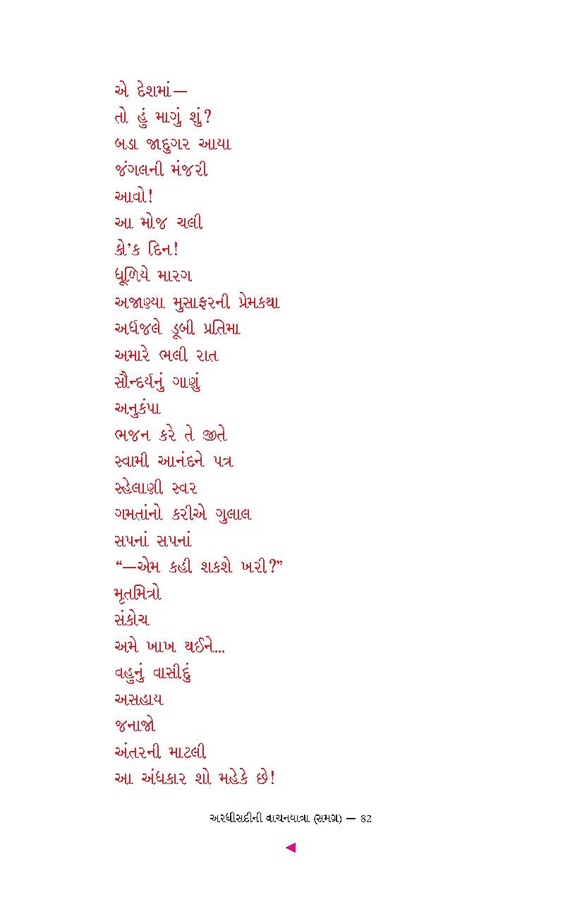 એ દેશમાં—
તો હું માગું શું?
બડા જાદુગર આયા
જંગલની મંજરી
આવો!
આ મોજ ચલી
કો’ક દિન!
ધૂળિયે મારગ
અજાણ્યા મુસાફરની પ્રેમકથા
અર્ધજલે ડૂબી પ્રતિમા
અમારે ભલી રાત
સૌન્દર્યનું ગાણું
અનુકંપા
ભજન કરે તે જીતે
સ્વામી આનંદને પત્ર
સ્હેલાણી સ્વર
ગમતાંનો કરીએ ગુલાલ
સપનાં સપનાં
“—એમ કહી શકશે ખરી?”
મૃતમિત્રો
સંકોચ
અમે ખાખ થઈને...
વહુનું વાસીદું
અસહાય
જનાજો
અંતરની માટલી
આ અંધકાર શો મહેકે છે!
અરધીસદીની વાચનયાત્રા (સમગ્ર) — 82